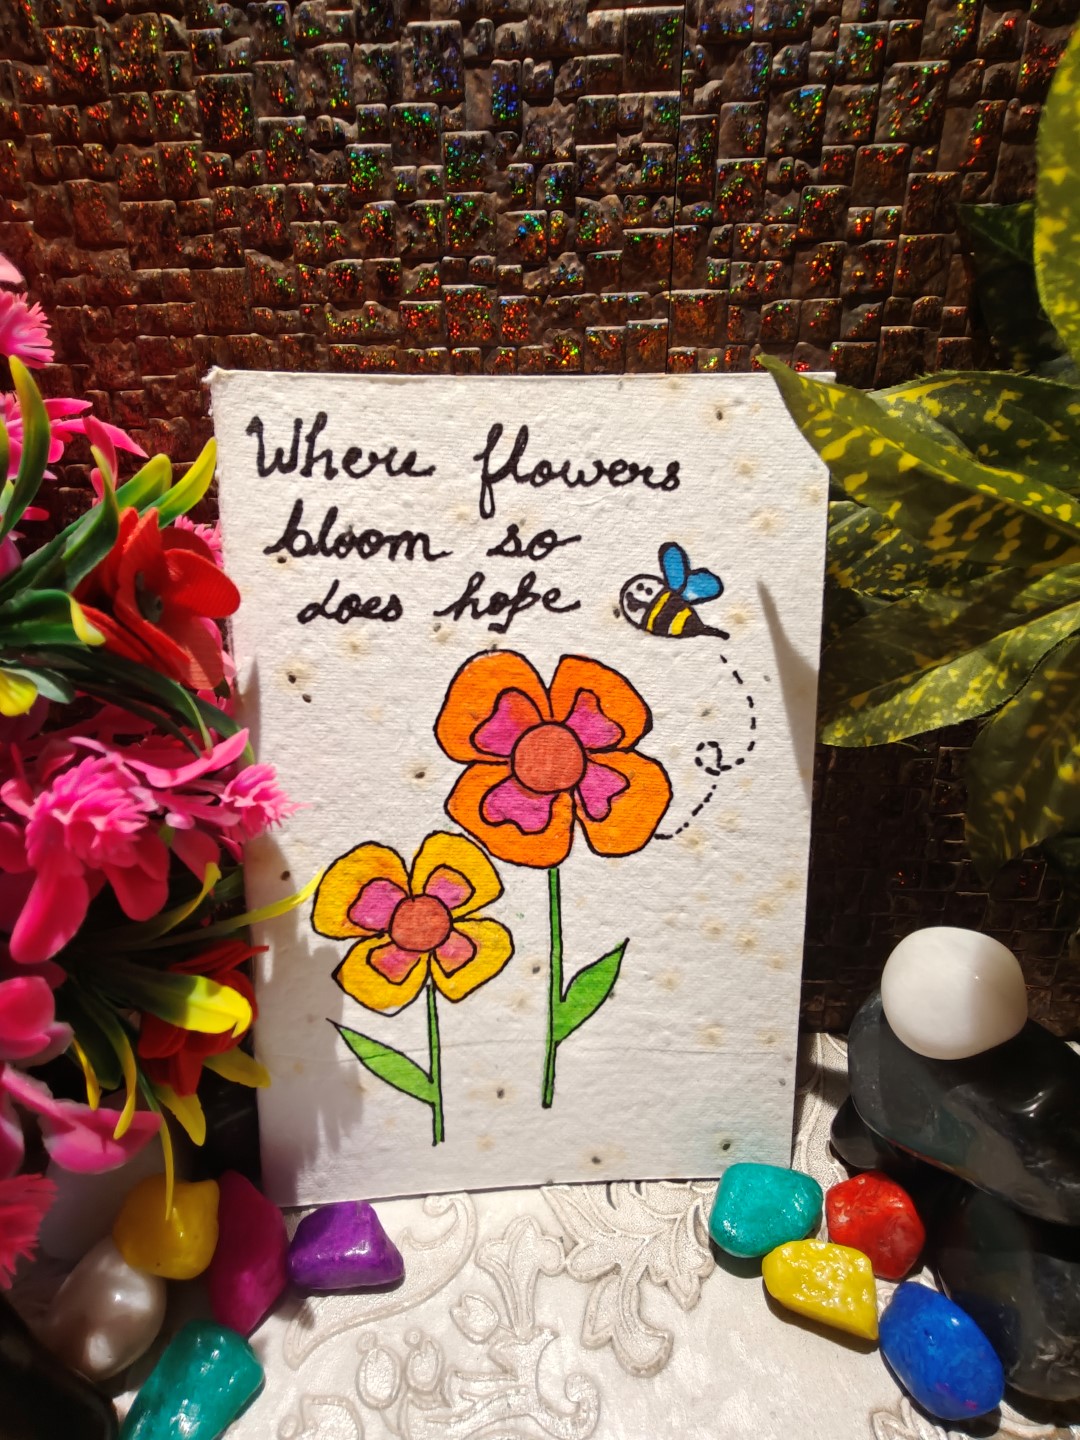 Where flowers
bloom so
does hope